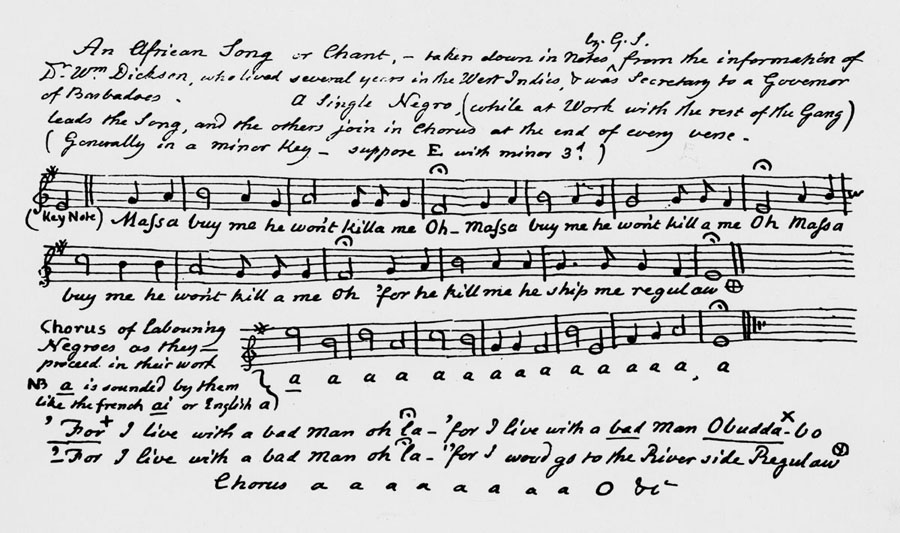 by G.S.
An African Song or Chant, – taken down in Notes ^ from the information of
Dr. Wm Dickson, who lived several years in the West Indies, & was Secretary to a Governor
of Barbadoes. A Single Negro, (while at Work with the rest of the Gang)
leads the Song, and the others join in Chorus at the end of every verse –
( Generally in a minor key – suppose E with minor 3d. )
(Key Note) Maſsa buy me he won't killa me Oh – Maſsa buy me he won't kill a me Oh Maſsa
buy me he won't kill a me Oh 'for he kill me he ship me regulaw ⊕
Chorus of labouring
Negroes as they –
proceed in their work
NB a is sounded by them
like the french ai or English a)
a a a a a a a a a a a a, a
'For + I live with a bad man oh la – 'for I live with a bad man Obudda x – bo
'For I live with a bad man oh la – 'for I woud go to the River side Regulaw
Chorus a a a a a a a a O &c